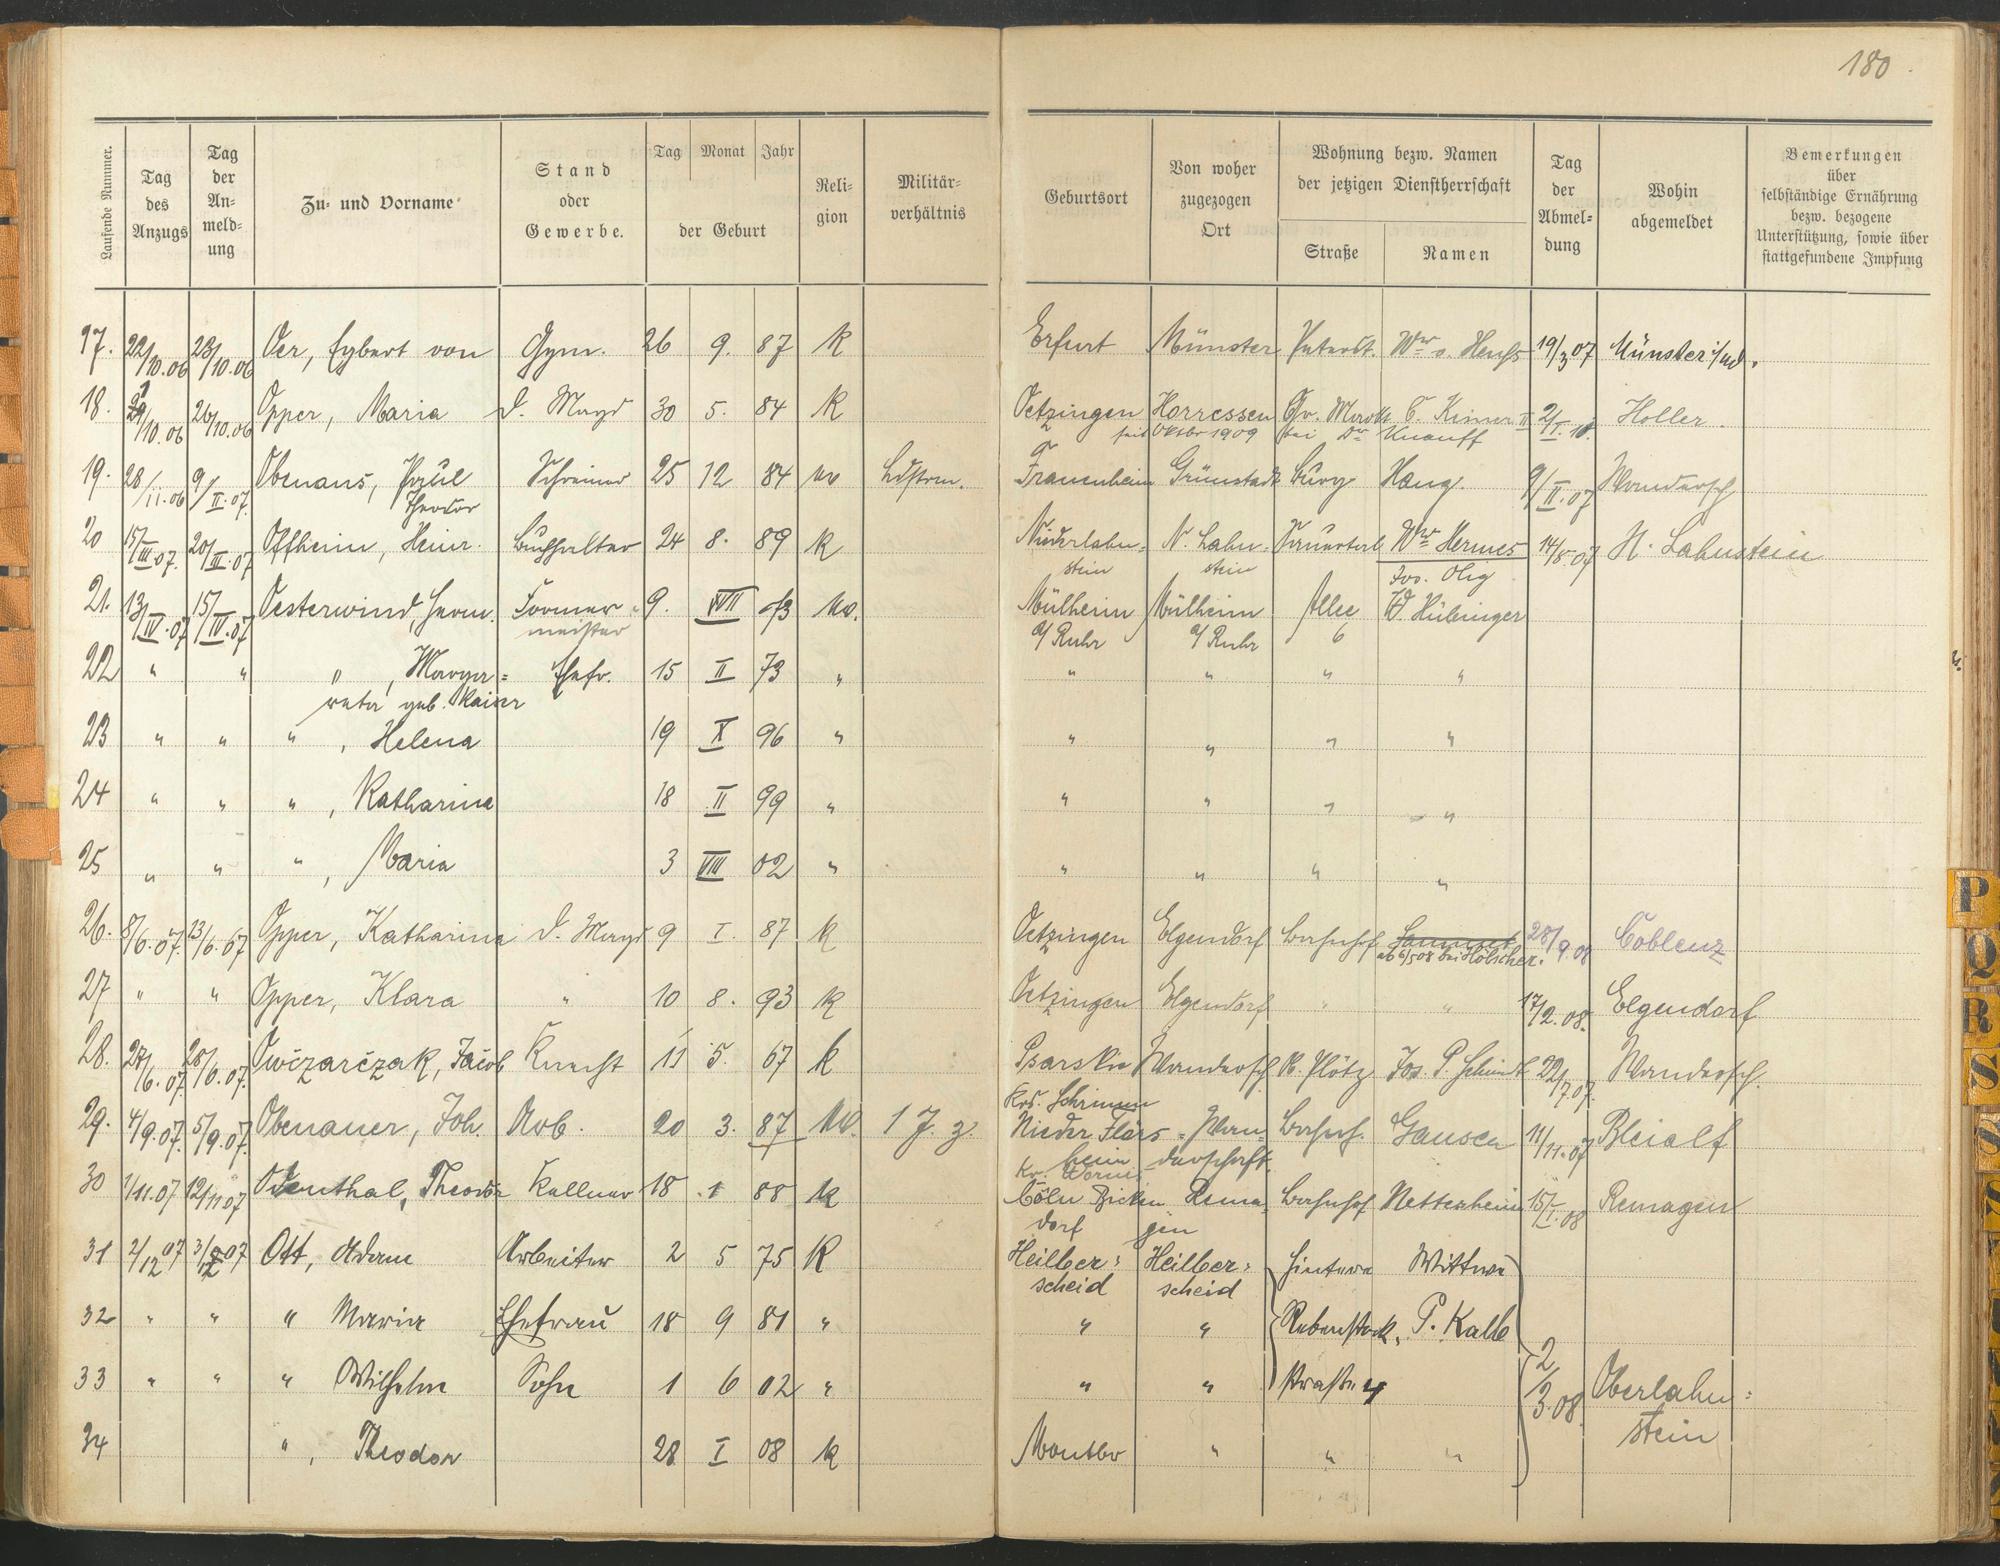 180
Laufende Nummer.
Tag des Anzugs
Tag der An- meld- ung
Zu- und Vorname
Stand oder Gewerbe.
Tag Monat Jahr
der Geburt
Reli- gion
Militär- verhältnis
Geburtsort
Von woher zugezogen Ort
Wohnung bezw. Namen der jetzigen Dienstherrschaft
Straße Namen
Tag der Abmel- dung
Wohin abgemeldet
Bemerkungen über selbständige Ernährung bezw. bezogene Unterstützung, sowie über stattgefundene Impfung
17. 22/10.06 23/10.06 Oer, Egbert von Gym. 26 9. 87 K Erfurt Münster Wwe 19/3 07 Münster
18. /10.06 26/10.06 Opper, Maria D. Magd 30 5. 84 K Oetzingen Horressen 2/I. 10. Holler.
seit Oktbr 1909 bei Dr Knauff
19. 28/11.06 9/II.07. Obenaus, Paul Schreiner 25 12 84 ev Ldstrm. Grünstadt Burg Haug. 9/II.07 Wandersch
Theodor
20 15/III.07. 20/III.07 Offheim, Heinr. Buchhalter 24 8. 89 K Niederlahn- N. Lahn- Sauertal Wwe Hermes 14/5.07 N. Lahnstein
stein stein Jos. Olig
21. 13/IV.07 15/IV.07 Oesterwind, Herm. Former- 9. 73 ev. Mülheim Mülheim Allee Hübinger
meister a/Ruhr a/Ruhr 6
22 " " " , Marga- Ehefr. 15 II 73 " " " " "
reta geb. Kaiser
23 " " " , Helena 19 X 96 " " " " "
24 " " " , Katharina 18 II 99 " " " " "
25 " " " , Maria 3 VIII 02 " " " " "
26. 8/6.07. 13/6.07 Opper, Katharina D. Magd 9 I. 87 K Oetzingen Elgendorf Bahnhof 28/9.08 Coblenz
ab 6/5 08 bei Hölscher.
27 " " Opper, Klara " 10 8. 93 K Oetzingen Elgendorf " " 17/2.08. Elgendorf
28. 27/6.07. 28/6.07. Owczarczak, Jacob Knecht 11 5. 67 k Psarskie Wandersch K. Plötz Jos. P. Schmidt 22/7 07. Wandersch.
Krs. Schrimm
29. 4/9.07. 5/9.07. Obenauer, Joh. Arb. 20 3. 87 ev. 1 J. z. Nieder Flörs- Wan- Bahnhof. Gausca 11/11.07 Bleialf
heim derschaft
Kr. Worms
30 1/11.07 12/11 07 Odenthal, Theodor Kellner 18 1 88 K Cöln Bicken Rema- Bahnhof Nettersheim 15/I.08 Remagen
dorf gen
31 2/12 07 3/12 07 Ott, Adam Arbeiter 2 5 75 K Heilber- Heilber- Hintere Wittwe
scheid scheid
32 " " " Maria Ehefrau 18 9 81 " " " Rebenstock- P. Kalb
33 " " " Wilhelm Sohn 1 6 02 " " " straße 2/3.08 Oberlahn-
stein
34 " , Theodor 28 I 08 K Montbr " " "
P
Q
R
S